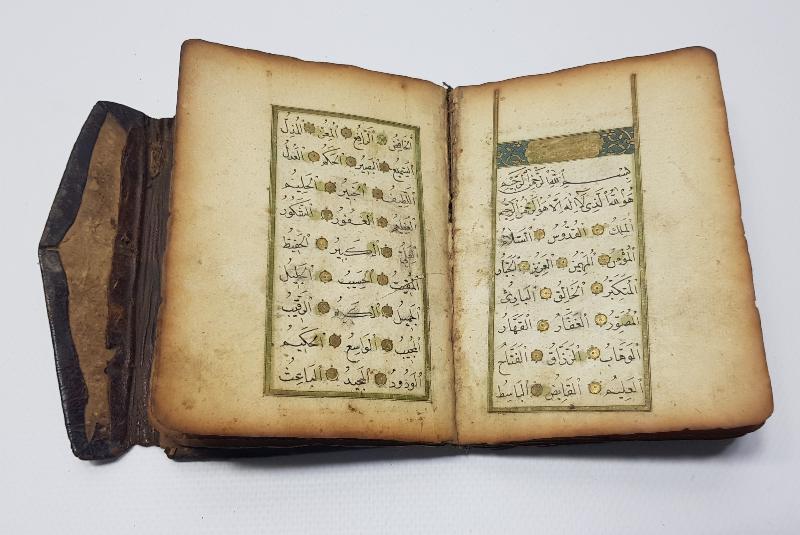 بسم الله الرحمن الرحيم
هو الله الذي لا اله الا هو الرحمن الرحيم
الملك القدوس السلام
المؤمن المهيمن العزيز الجبار
المتكبر الخالق البارئ
المصور الغفار القهار
الوهاب الرزاق الفتاح
العليم القابض الباسط
الخافض الرافع المعز المذل
السميع البصير الحكم العدل
اللطيف الخبير الحليم
العظيم الغفور الشكور
العلي الكبير الحفيظ
المقيت الحسيب الجليل
الجميل الكريم الرقيب
المجيب الواسع الحكيم
الودود المجيد الباعث